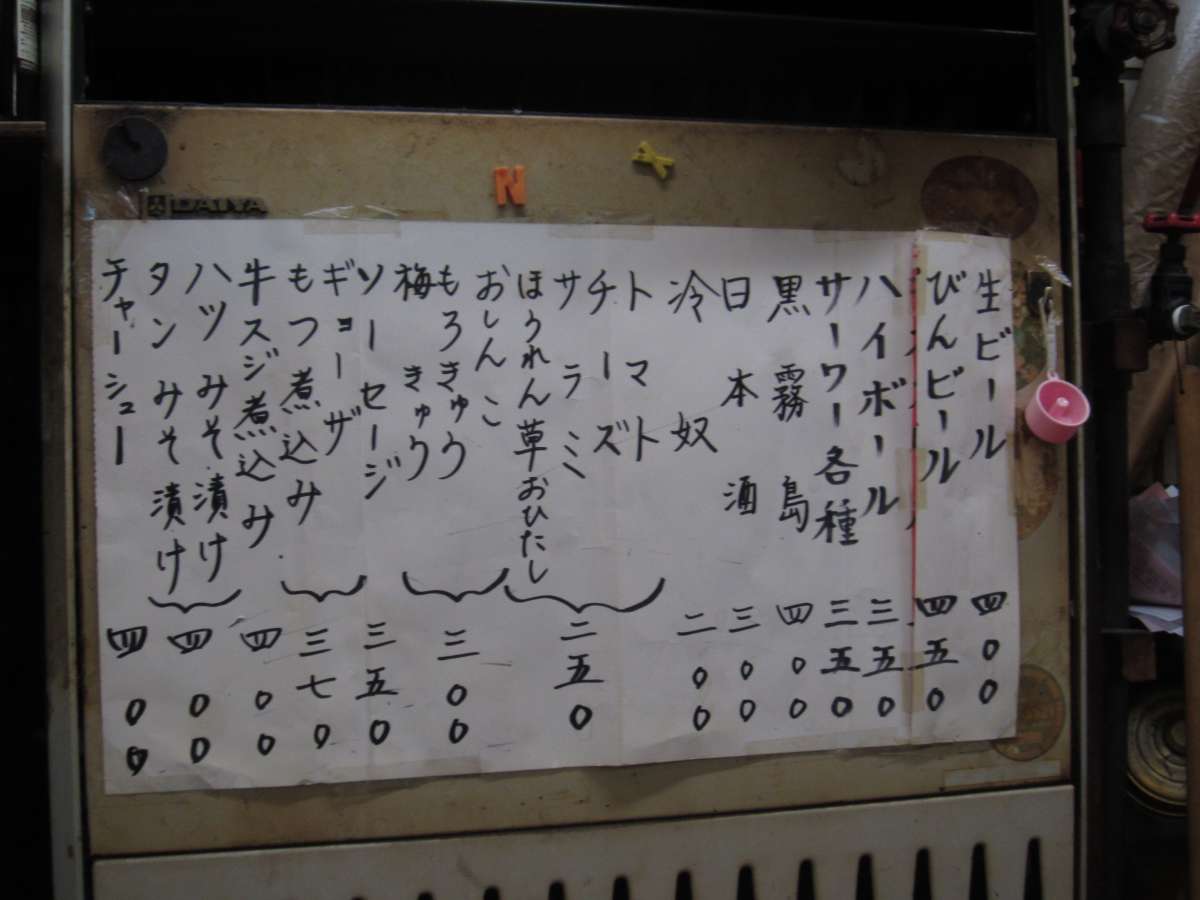 DAIYA
N
Y
生ビール 四00
びんビール 四五0
ハイボール 三五0
サーワー各種 三五0
黒霧島 四00
日本酒 三00
冷奴 二00
トマト
チーズ
サラミ
ほうれん草おひたし 二五0
おしんこ
もろきゅう
梅きゅう 三00
ソーセージ 三五0
ギョーザ
もつ煮込み 三七0
牛スジ煮込み 四00
ハツ みそ漬け
タン みそ漬け 四00
チャーシュー 四00